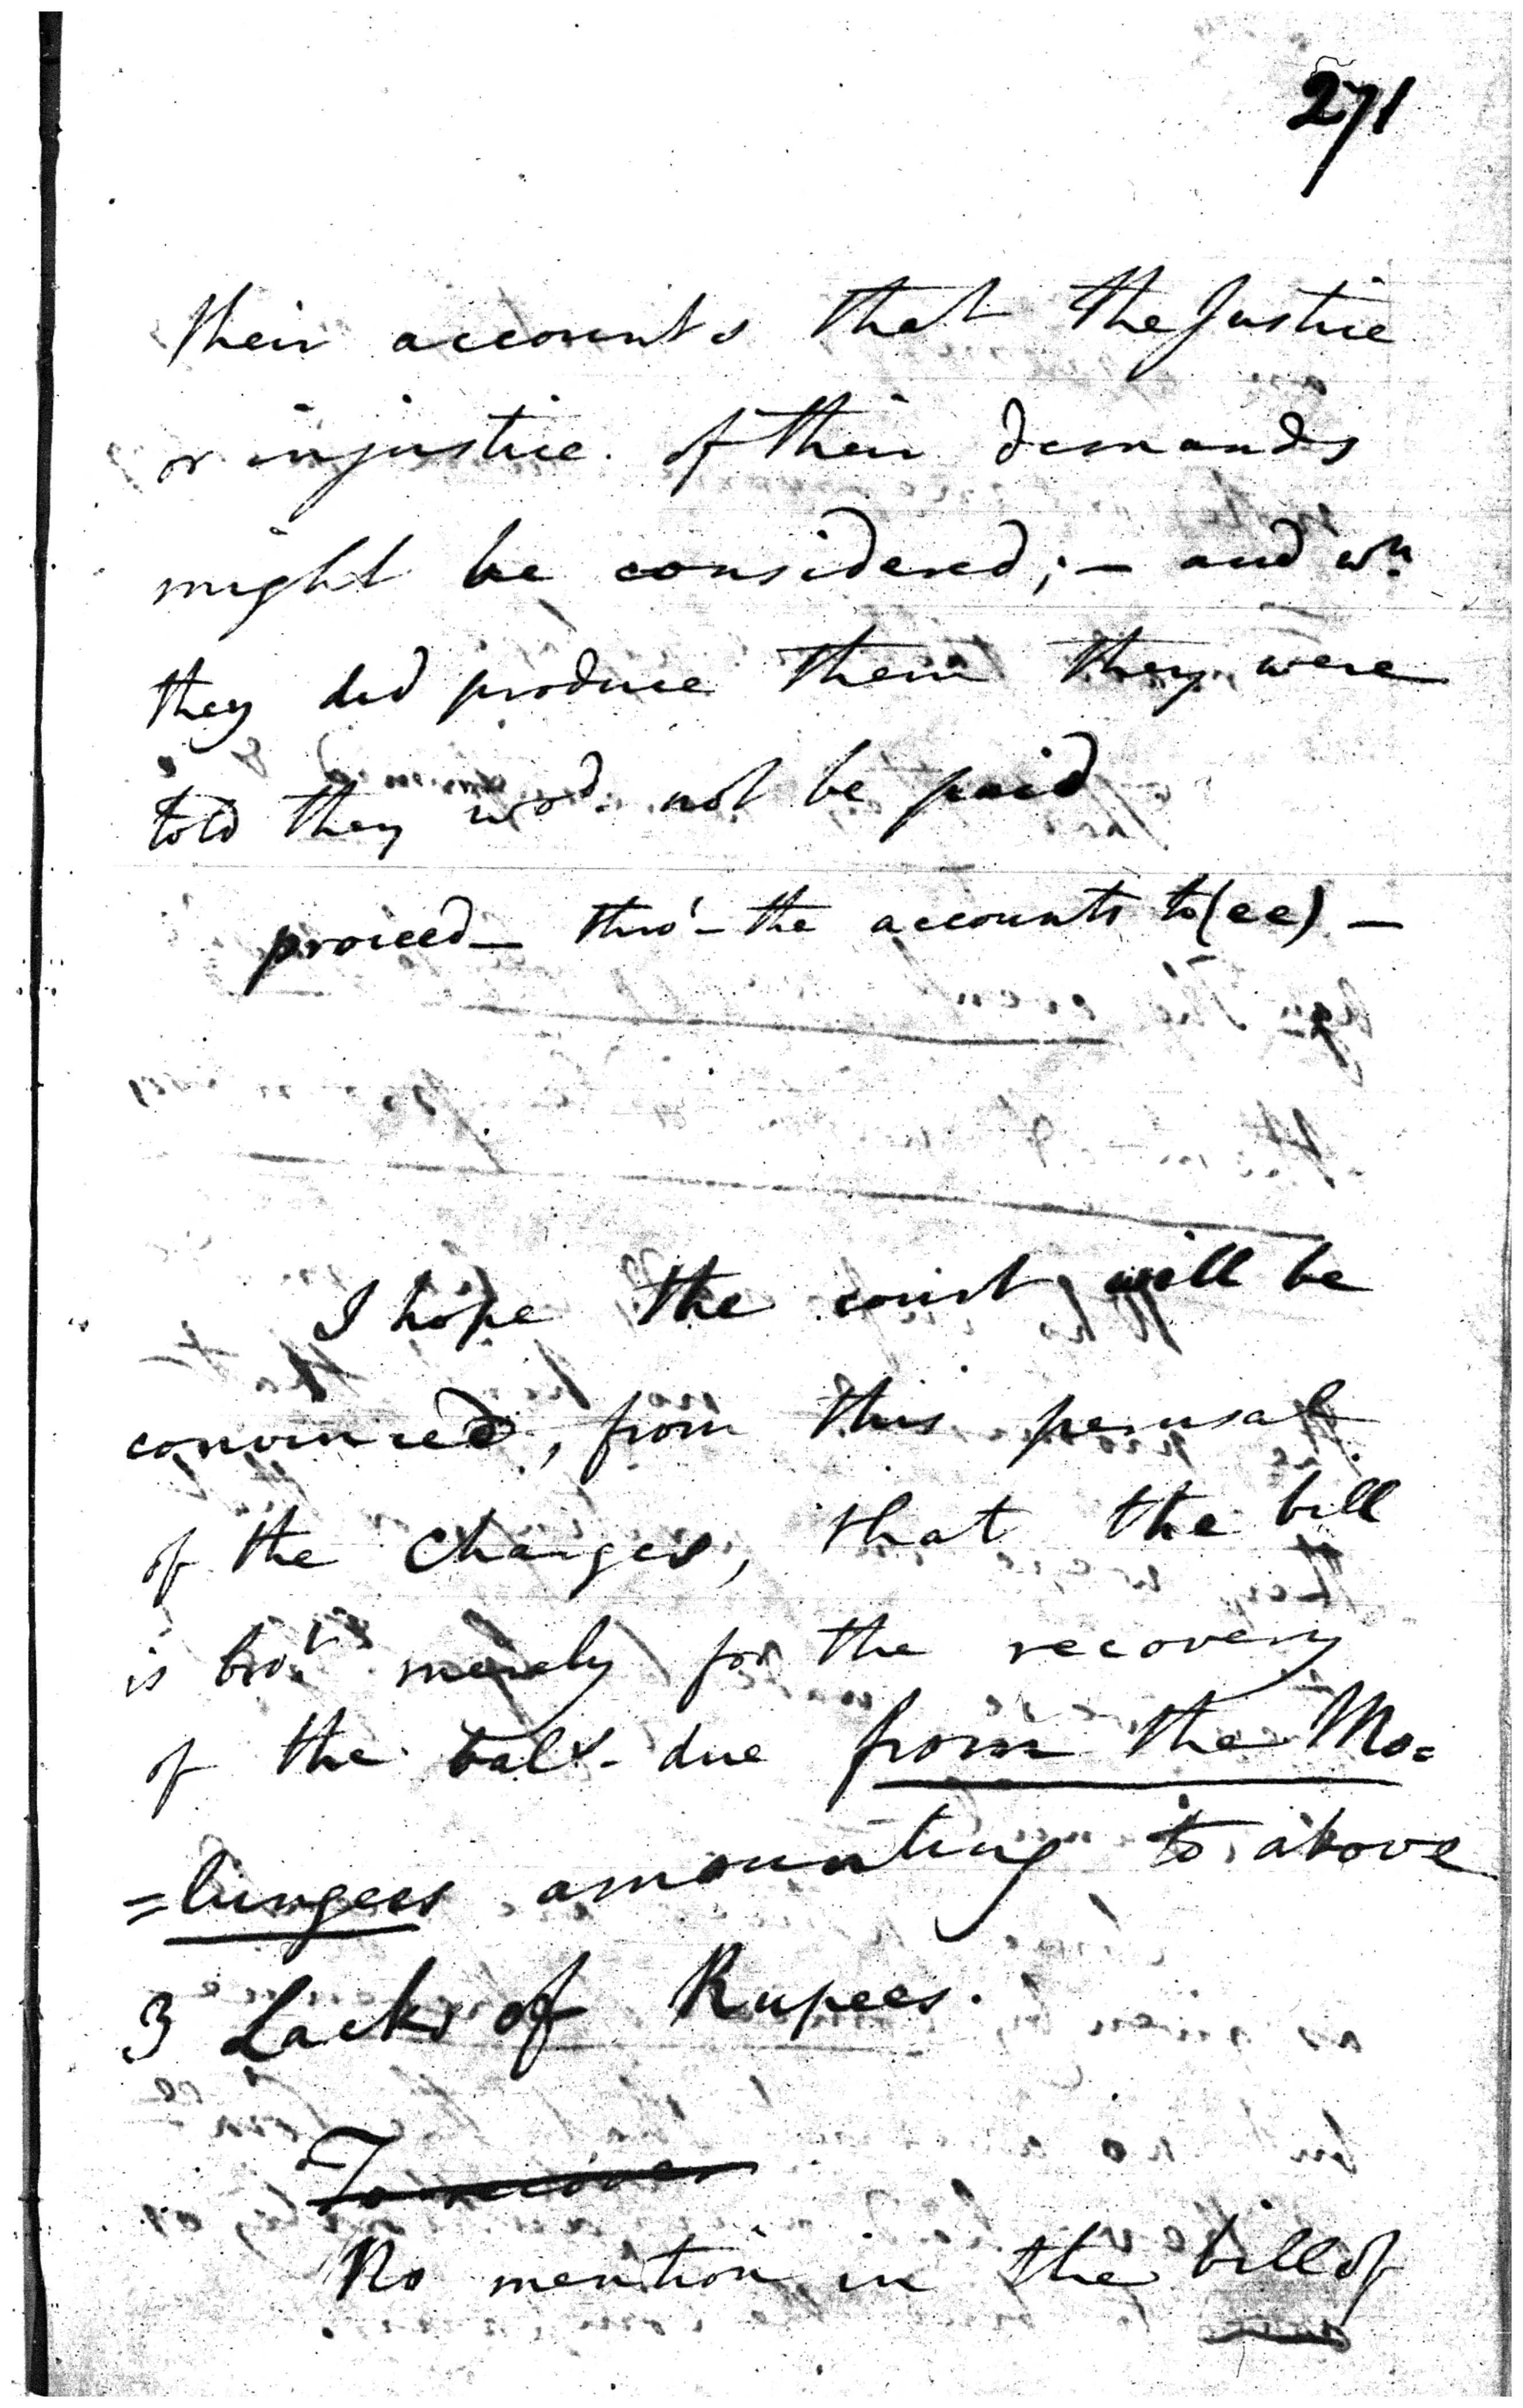 271
their accounts that the Justice
or injustice. of their demands
might be considered; — and wn.
they did produce them they were
told they wod. not be paid
proceed — thro' — the accounts to (ee) —
I hope the court will be
convinced, from this perusal
of the charges, that the bill
is brot. merely for the recovery
of the due from the Mo=
=lungees amounting to above
3 Lacks of Rupees.
To recover
No mention in the bill of